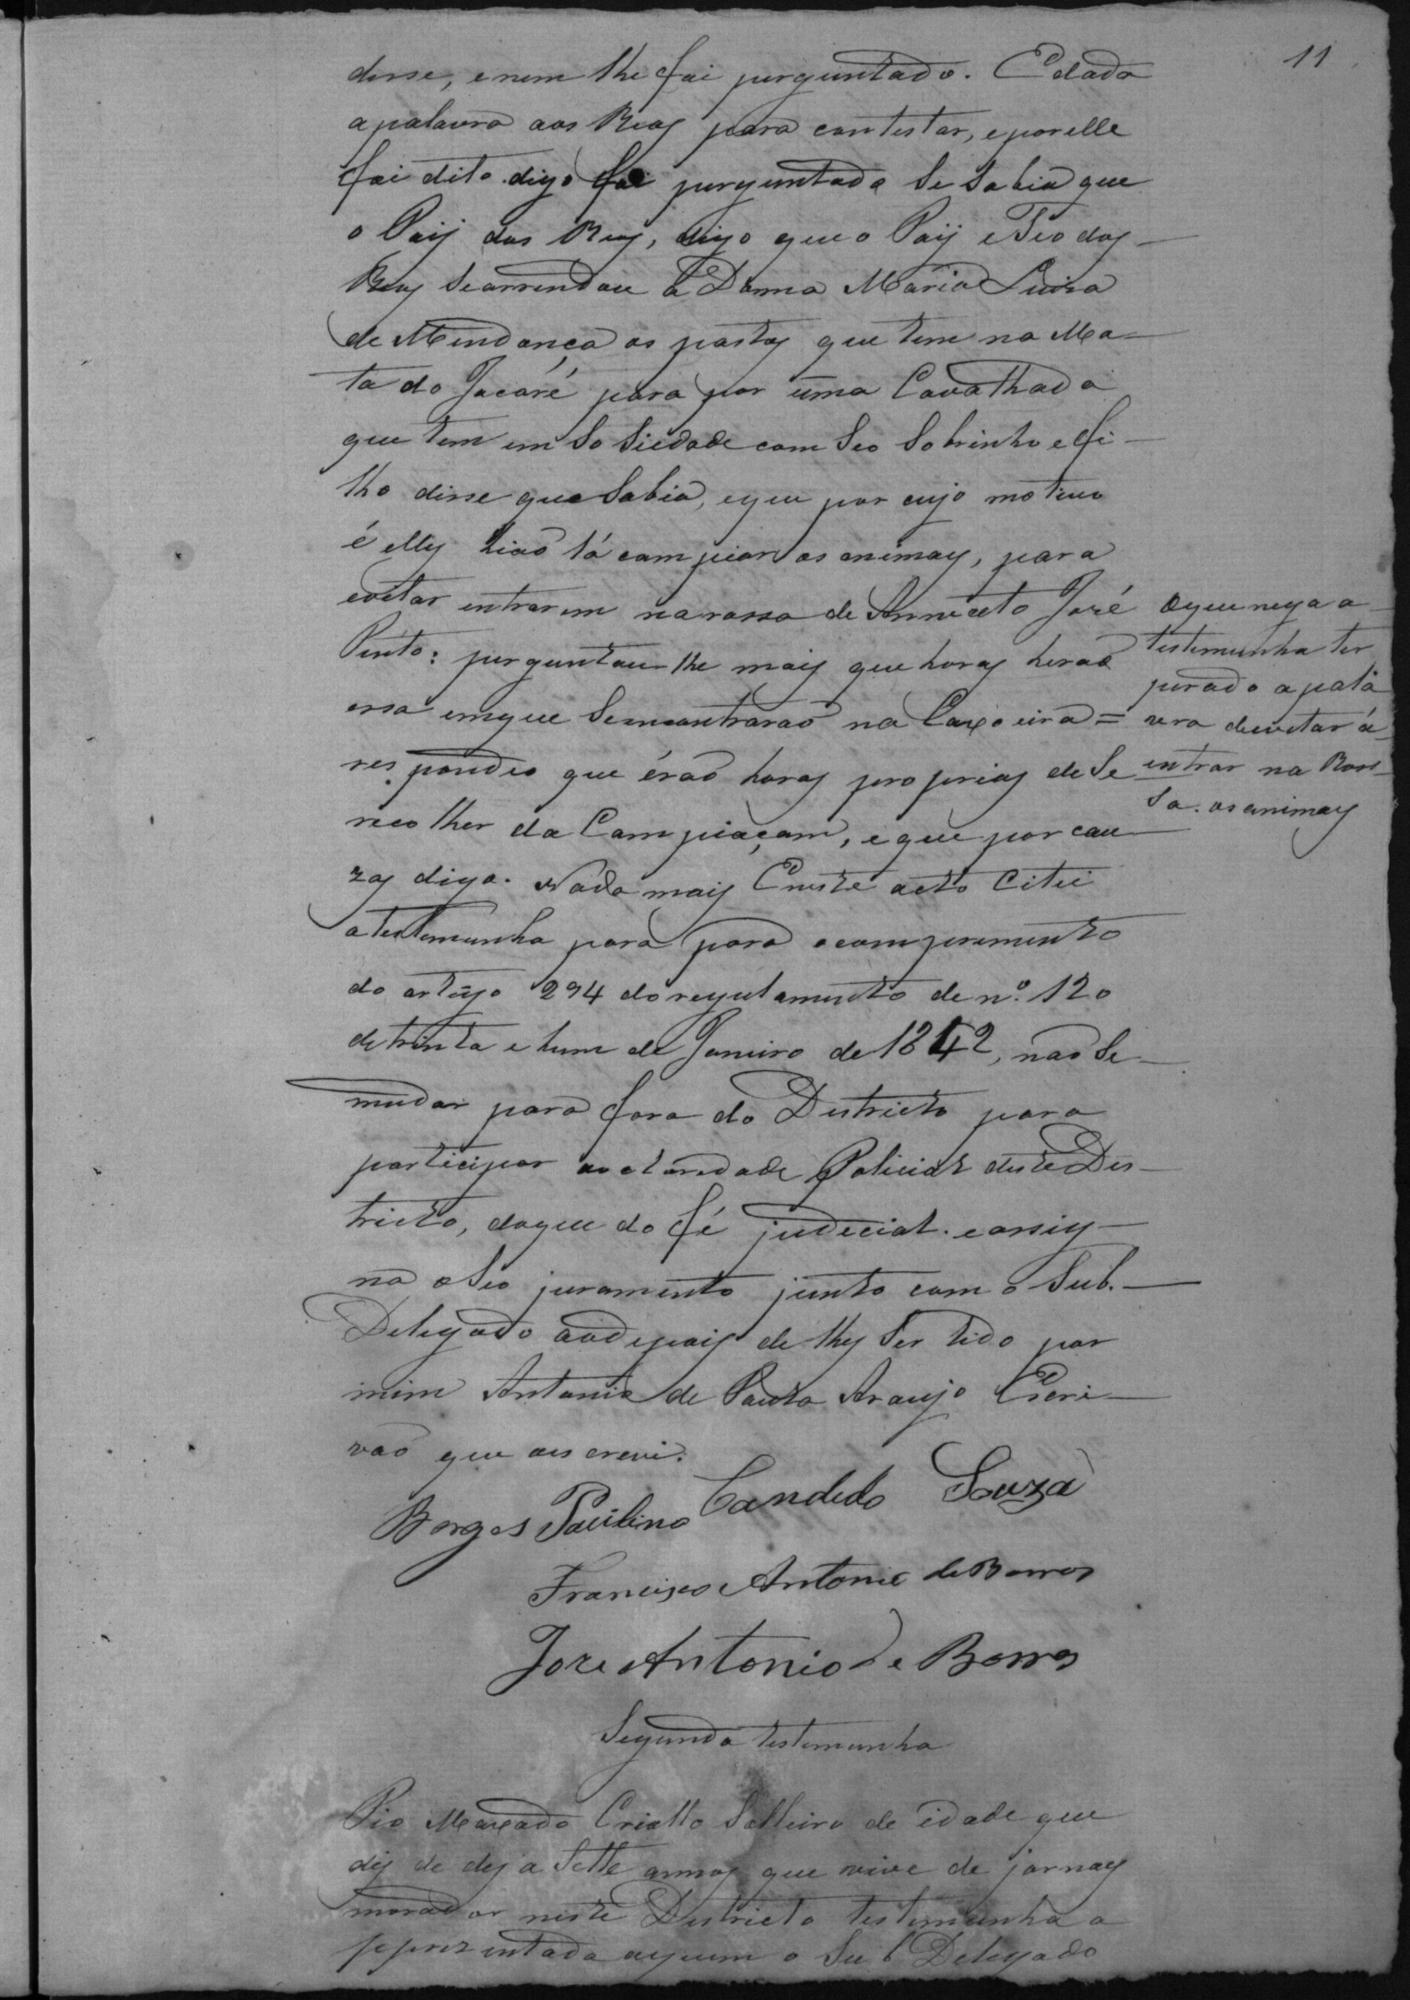 11
disse, e nem lhe foi perguntado. E dada
a palavra aos Reos para contestar, e por elle
foi dito digo foi perguntado Se Sabia que
o Paij dos Reos, digo que o Paij e Tio dos
Reos Se arrendou a Donna Maria Luiza
de Mendonça os pastos que tem na Ma-
ta do Jacaré para por uma Cavalhada
que tem em Sosiedade com Seo Sobrinho e fi-
lho disse que Sabia, e que por cujo motivo
é elles hiaõ lá campiar os animaes, para
evitar entrarem na rossa de Anniceto José
Pinto: perguntou-lhe mais que horas heraõ
essa em que Se encontraraõ na Caxoeira =
respondeo que éraõ horas proprias de Se
recolher da Campiaçam, e que por cau
zas digo. Nada mais E neste acto Citei
a testemunha para para o comprimento
do artigo 294 do regulamento de nº. 120
de trinta e hum de Janeiro de 1842, naõ Se
mudar para fora do Districto para
participar auctoridade Policial deste Des-
tricto, do que do fé judicial. e assig-
na o Seo juramento junto com o Sub.
Delegado aodepois de lhes Ser lido por
mim Antonio de Pauta Araujo Escri-
vaõ que aescrevi.
O que nega a
testemunha ter
jurado a pala
vra de evitar á
entrar na Ros-
Sa. os animaes
Borges Paulino Candido Souza
Francisco Antonio de Barros
Joze Antonio de Barros
Segunda testemunha
Pio Maxado Criollo Solteiro de idade que
dis de des a Sette annos que vive de jornaes
morador neste Destricto testemunha a
prezentada a quem o Sub Delegado